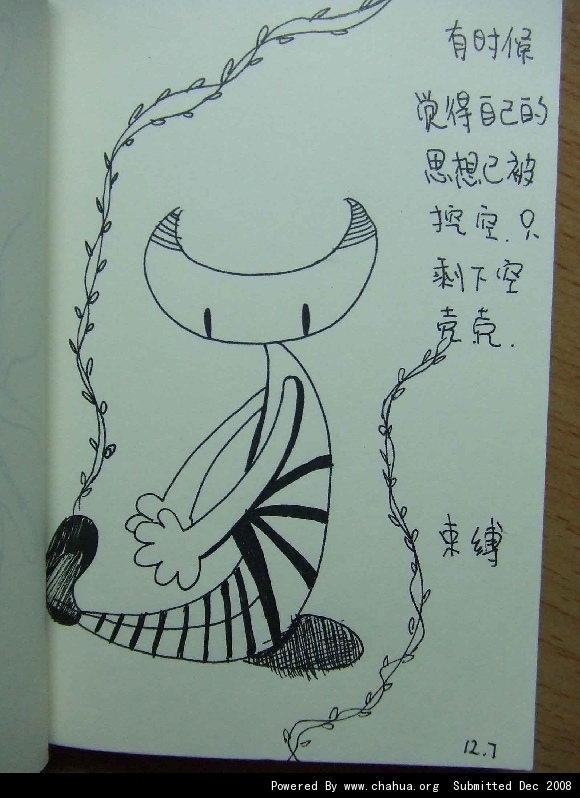 有时候
觉得自己的
思想已被
挖空.只
剩下空
壳壳.
束缚
12.7
Powered By www.chahua.org Submitted Dec 2008